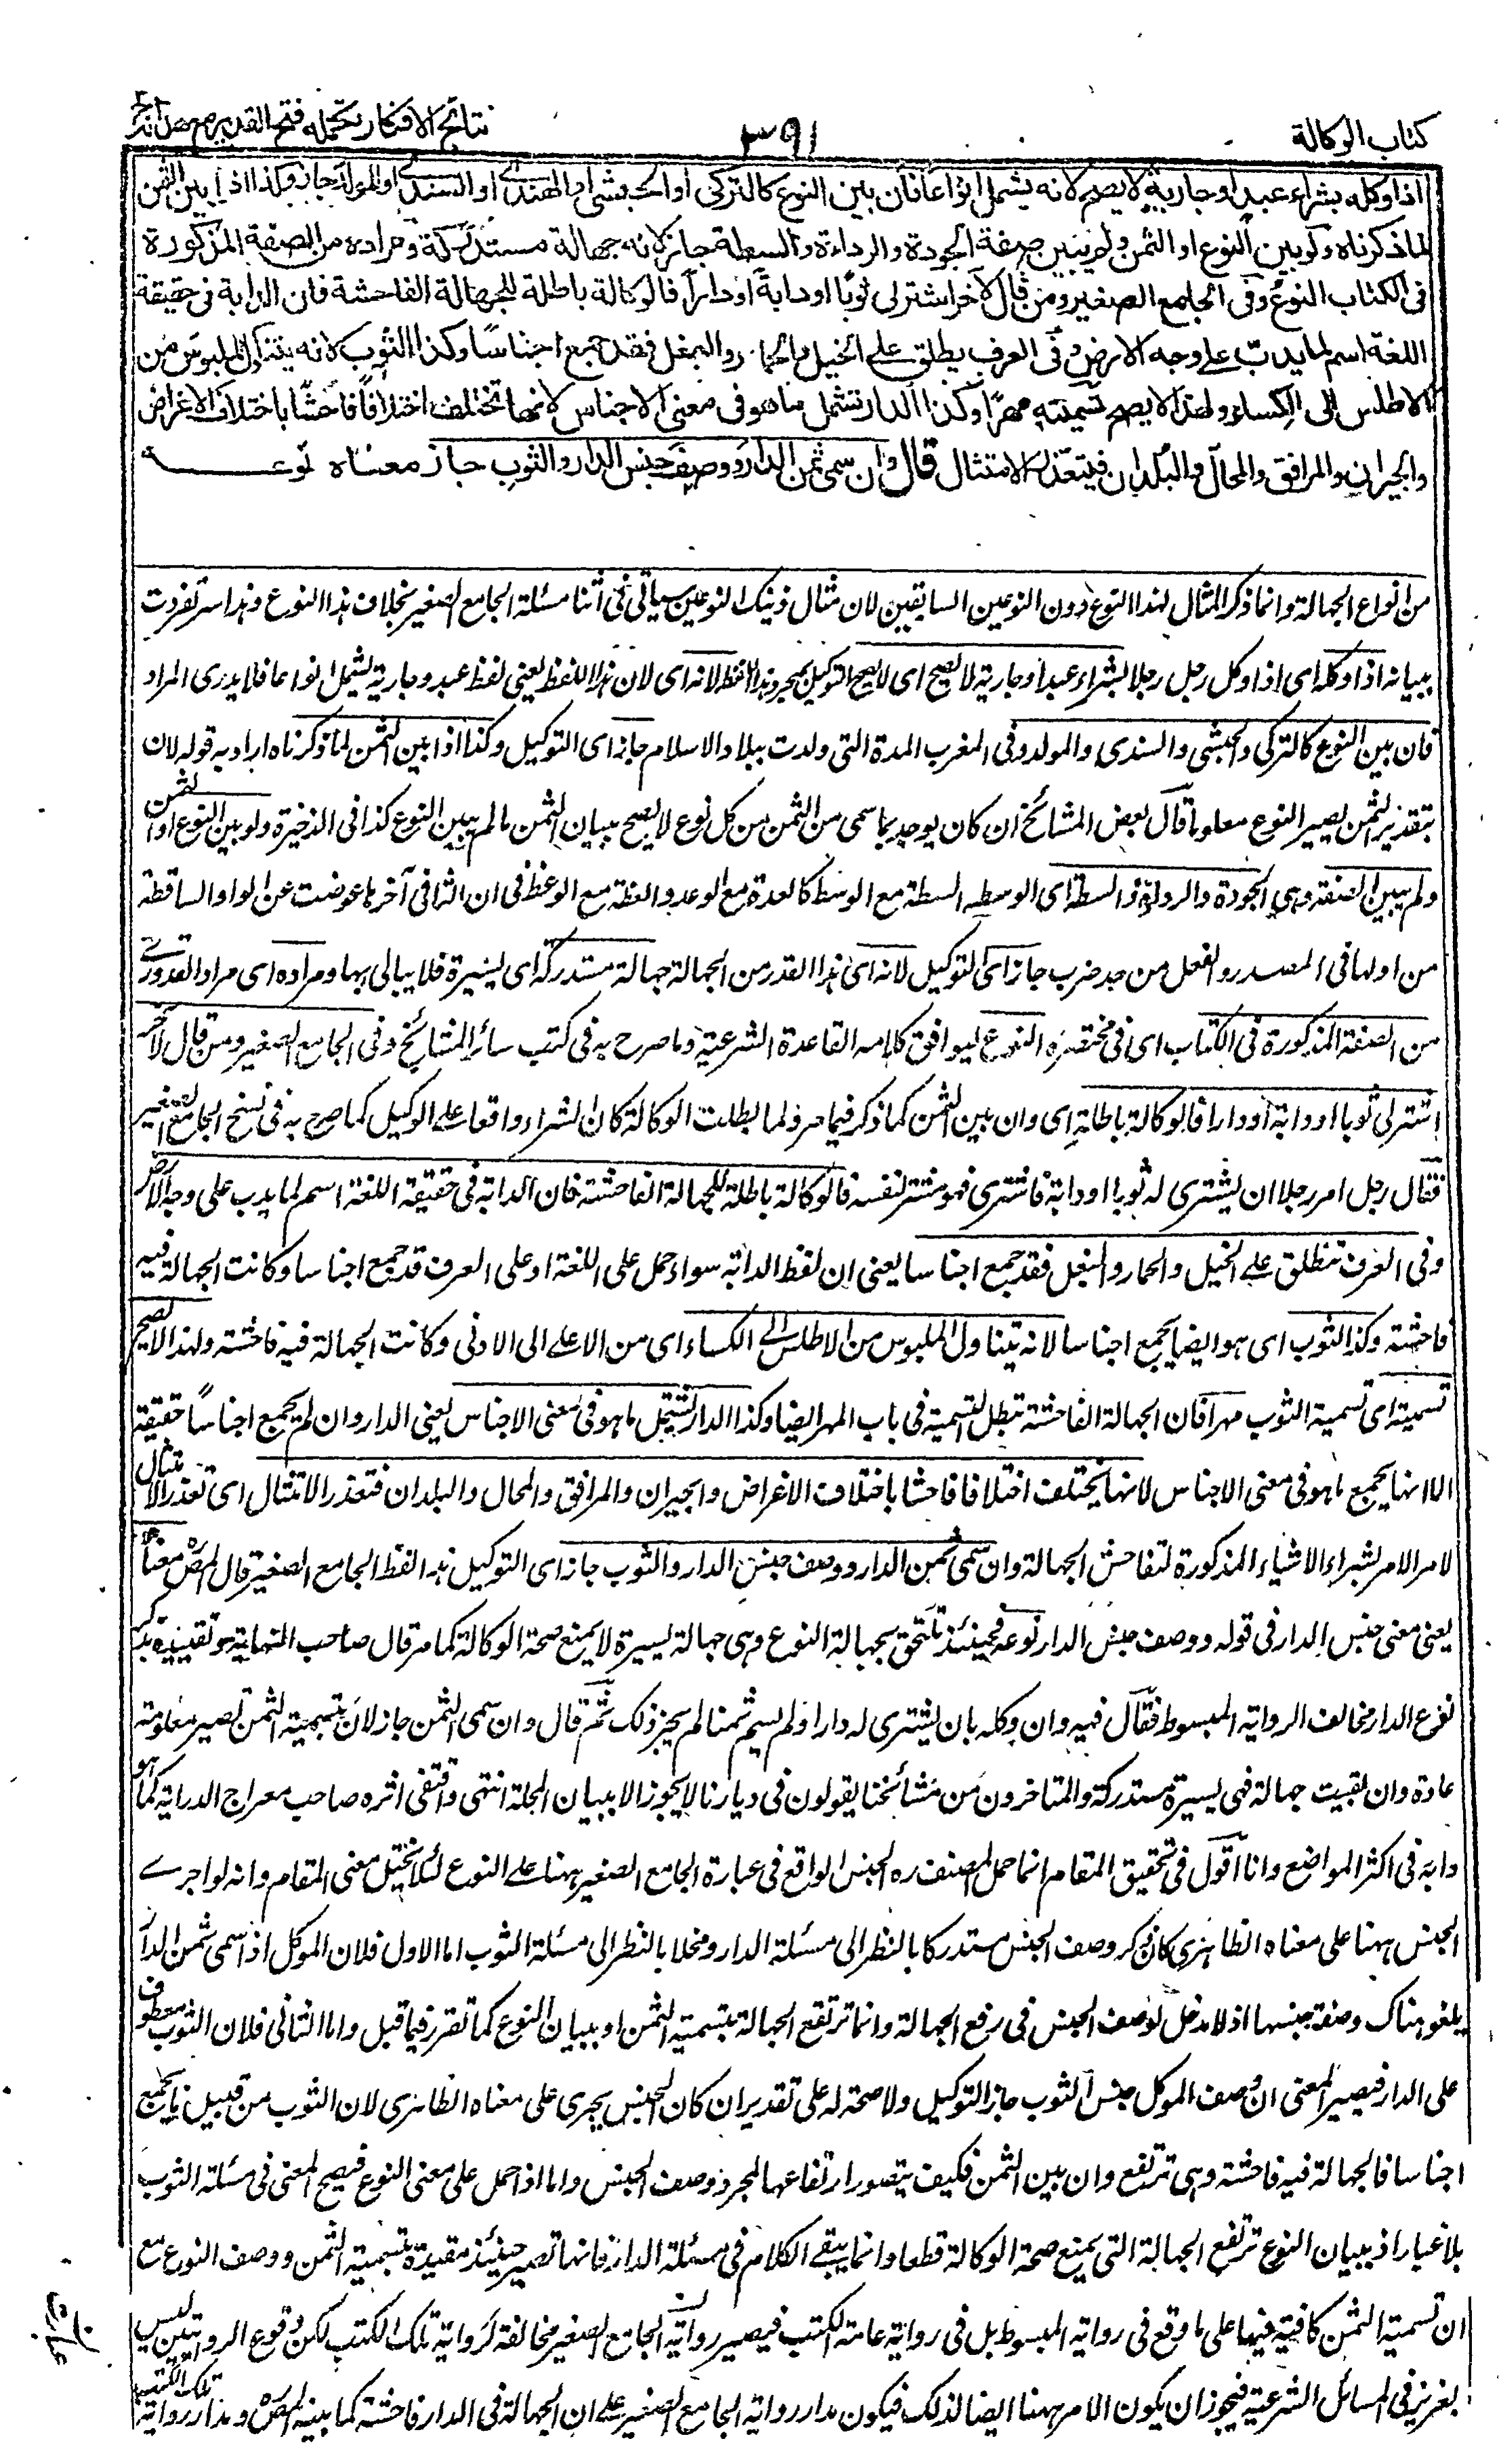 كتاب الوكالة
٣٩١
نتائج الافكار تكمله فتح القدير مع هدايه
اذا وكله بشراء عبد او جارية لا يصح لانه يشمل انواعا فان بين النوع كالتركي او الحبشي او الهندي او السندي او المولد جاز وكذا اذا بين الثمن
لما ذكرناه ولو بين النوع او الثمن ولم يبين صفة الجودة والرداءة والسطة جاز لانه جهالة مستدركة ومراده من الصفة المذكورة
في الكتاب النوع وفي الجامع الصغير ومن قال لآخر اشتر لي ثوبًا او دابةً او دارًا فالوكالة باطلة للجهالة الفاحشة فان الدابة في حقيقة
اللغة اسم لما يدب على وجه الارض وفي العرف يطلق على الخيل والحمار والبغل فقد جمع اجناسًا وكذا الثوب لانه يتناول الملبوس من
الاطلس الى الكساء ولهذا لا يصح تسميته مهرًا وكذا الدار تشمل ما هو في معنى الاجناس لانها تختلف اختلافًا فاحشًا باختلاف الاغراض
والجيران والمرافق والمحال والبلدان فيتعذر الامتثال قال وان سمى ثمن الدار ووصف جنس الدار والثوب جاز معناه نوعه
من انواع الجهالة وانما ذكر المثال لهذا النوع دون النوعين السابقين لان مثال ذينك النوعين سيأتي في اثنا مسئلة الجامع الصغير بخلاف هذا النوع وهذا سر تفردت
ببيانه اذا وكله اى اذا وكل رجل رجلا بشراء عبد او جارية لا يصح اى لا يصح التوكيل بمجرد هذا اللفظ لانه اى لان هذا اللفظ يعني لفظ عبد وجارية يشمل انواعا فلا يدرى المراد
فان بين النوع كالتركي والحبشي والسندى والمولد وفي المغرب المدة التي ولدت ببلاد الاسلام جاز اى التوكيل وكذا اذا بين الثمن لما ذكرناه اراد به قوله لان
بتقدير الثمن يصير النوع معلوما قال بعض المشائخ ان كان يوجد بما سمى من الثمن من كل نوع لا يصح ببيان الثمن ما لم يبين النوع كذا في الذخيرة ولو بين النوع او الثمن
ولم يبين الصفة وهي الجودة والرداءة والسطة اى الوسط السطة مع الوسط كالعدة مع الوعد والعظة مع الوعظ في ان التا في آخرها عوضت عن الواو الساقطة
من اولها في المصدر والفعل من حد ضرب جاز اى التوكيل لانه اى هذا القدر من الجهالة جهالة مستدركة اى يسيرة فلا يبالى بها ومراده اى مراد القدورى
من الصفة المذكورة في الكتاب اى في مختصره النوع ليوافق كلامه القاعدة الشرعية وما صرح به في كتب سائر المشائخ وفي الجامع الصغير ومن قال لآخر
اشتر لي ثوبا او دابة او دارا فالوكالة باطلة اى وان بين الثمن كما ذكر فيما مر ولما بطلت الوكالة كان الشراء واقعا على الوكيل كما صرح به في نسخ الجامع الصغير
فقال رجل امر رجلا ان يشترى له ثوبا او دابة فاشترى فهو مشتر لنفسه فالوكالة باطلة للجهالة الفاحشة فان الدابة في حقيقة اللغة اسم لما يدب على وجه الارض
وفي العرف تطلق على الخيل والحمار والبغل فقد جمع اجناسا يعني ان لفظ الدابة سواء حمل على اللغة او على العرف قد جمع اجناسا وكانت الجهالة فيه
فاحشة وكذا الثوب اى هو ايضا يجمع اجناسا لانه يتناول الملبوس من الاطلس الى الكساء اى من الاعلى الى الادنى وكانت الجهالة فيه فاحشة ولهذا لا يصح
تسميته اى تسمية الثوب مهرا فان الجهالة الفاحشة تبطل التسمية في باب المهر ايضا وكذا الدار تشتمل ما هو في معنى الاجناس يعني الدار وان لم يجمع اجناسًا حقيقة
الا انها يجمع ما هو في معنى الاجناس لانها يختلف اختلافا فاحشا باختلاف الاغراض والجيران والمرافق والمحال والبلدان فتعذر الامتثال اى تعذر الامتثال
لامر الآمر بشراء الاشياء المذكورة لتفاحش الجهالة وان سمى ثمن الدار ووصف جنس الدار والثوب جاز اى التوكيل هذا لفظ الجامع الصغير قال المص معناه
يعني معنى جنس الدار في قوله ووصف جنس الدار نوعه فحينئذ تلتحق بجهالة النوع وهي جهالة يسيرة لا يمنع صحة الوكالة كما مر قال صاحب النهاية وتقييده بذكر
نوع الدار مخالف الرواية المبسوط فقال فيه وان وكله بان يشترى له دارا ولم يسم ثمنا لم يجز ذلك ثم قال وان سمى الثمن جاز لان بتسمية الثمن تصير معلومة
عادة وان بقيت جهالة فهي يسيرة مستدركة والمتاخرون من مشائخنا يقولون في ديارنا لا يجوز الا ببيان المحلة انتهى واقتفى اثره صاحب معراج الدراية كما هو
دابه في اكثر المواضع وانا اقول في تحقيق المقام انما حمل المصنف ره الجنس الواقع في عبارة الجامع الصغير ههنا على النوع لئلا يختل معنى المقام وانه لو اجرى
الجنس ههنا على معناه الظاهرى كان ذكر وصف الجنس مستدركا بالنظر الى مسئلة الدار ومخلا بالنظر الى مسئلة الثوب اما الاول فلان الموكل اذا سمى ثمن الدار
يلغو هناك وصفه جنسها اذ لا مدخل لوصف الجنس في رفع الجهالة وانما ترتفع الجهالة بتسمية الثمن او ببيان النوع كما تقرر فيما قبل واما الثاني فلان الثوب معطوف
على الدار فيصير المعنى ان وصف الموكل جنس الثوب جاز التوكيل ولا صحة له على تقدير ان كان الجنس يجرى على معناه الظاهرى لان الثوب من قبيل ما يجمع
اجناسا فالجهالة فيه فاحشة وهي ترتفع وان بين الثمن فكيف يتصور ارتفاعها لمجرد وصف الجنس واما اذا حمل على معنى النوع فيصح المعنى في مسئلة الثوب
بلا غبار اذ ببيان النوع ترتفع الجهالة التي يمنع صحة الوكالة قطعا وانما يبقى الكلام في مسئلة الدار فانها تصير حينئذ مقيدة بتسمية الثمن ووصف النوع مع
ان تسمية الثمن كافية فيها على ما وقع في رواية المبسوط بل في رواية عامة الكتب فيصير رواية الجامع الصغير مخالفة لرواية تلك الكتب لكن وقوع الروايتين ليس
بغريز في المسائل الشرعية فيجوز ان يكون الامر ههنا ايضا لذلك فيكون مدار رواية الجامع الصغير على ان الجهالة في الدار فاحشة كما بينه المص ومدار رواية تلك الكتب